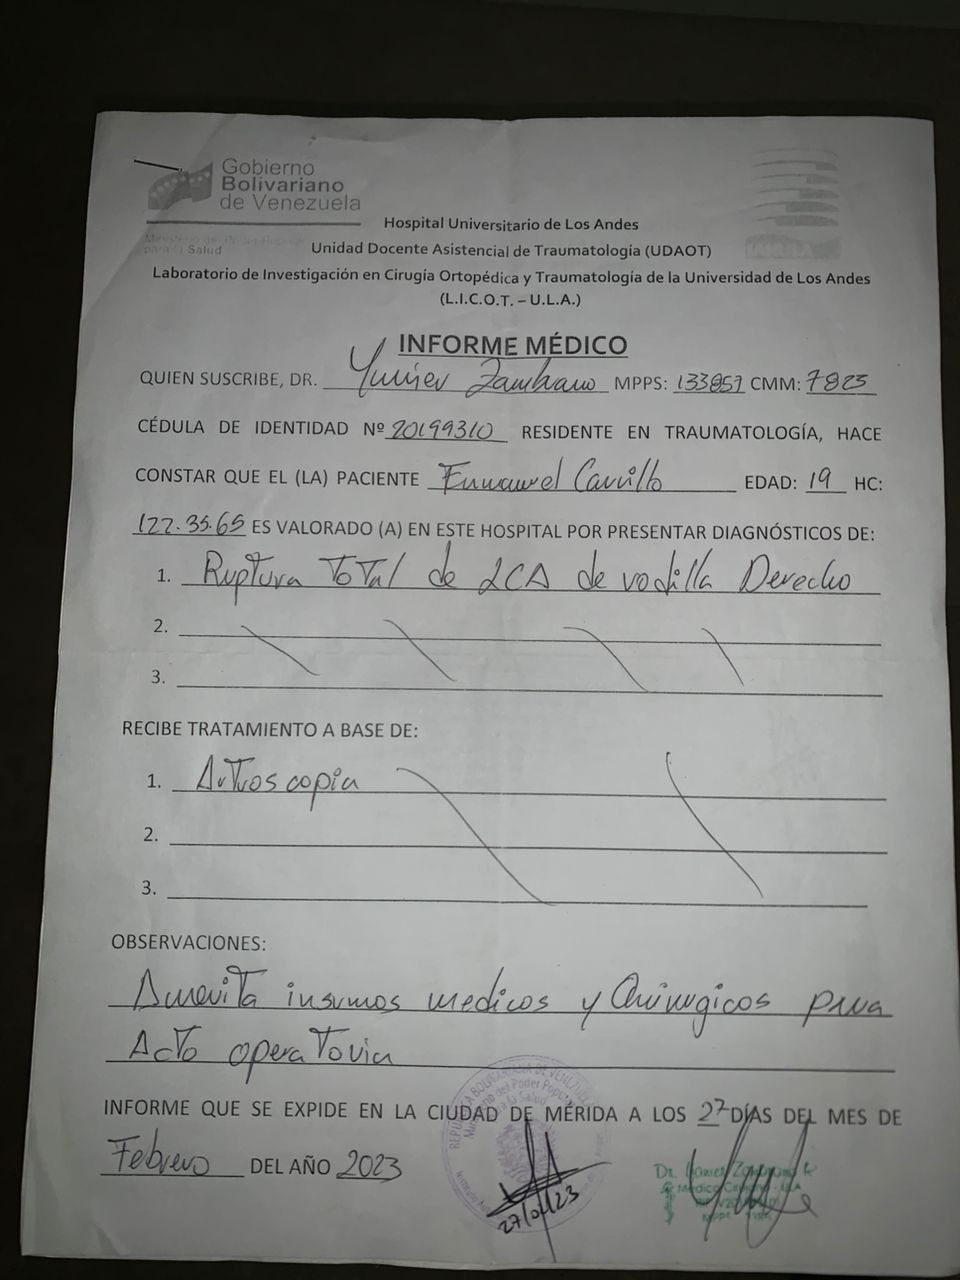 Gobierno
Bolivariano
de Venezuela
Ministerio del Poder Popular
para la Salud
Hospital Universitario de Los Andes
Unidad Docente Asistencial de Traumatología (UDAOT)
Laboratorio de Investigación en Cirugía Ortopédica y Traumatología de la Universidad de Los Andes
(L.I.C.O.T. – U.L.A.)
INFORME MÉDICO
QUIEN SUSCRIBE, DR. Yunier Zambrano MPPS: 133857 CMM: 7823
CÉDULA DE IDENTIDAD Nº 20199310 RESIDENTE EN TRAUMATOLOGÍA, HACE
CONSTAR QUE EL (LA) PACIENTE Enmanuel Carrillo EDAD: 19 HC:
122.35.65 ES VALORADO (A) EN ESTE HOSPITAL POR PRESENTAR DIAGNÓSTICOS DE:
1. Ruptura Total de LCA de rodilla Derecho
2.
3.
RECIBE TRATAMIENTO A BASE DE:
1. Artroscopia
2.
3.
OBSERVACIONES:
Amerita insumos medicos y Quirurgicos para
Acto operatoria
INFORME QUE SE EXPIDE EN LA CIUDAD DE MÉRIDA A LOS 27 DÍAS DEL MES DE
Febrero DEL AÑO 2023
REPÚBLICA BOLIVARIANA DE VENEZUELA
Ministerio del Poder Popular
para la Salud
Dr.